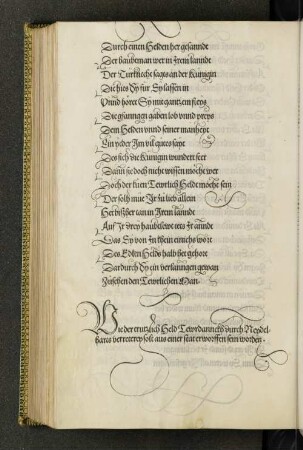 Durch einen Helden her gesanndt
Der baubeman wer in Irem lanndt
Der Turkische sagts an der Kunigin
Die hies Sy fur Sy lassen in
Vnnd horet Sy mit gantzem fleys
Die gaben lob vnnd preys
Dem Helden vnnd seiner manheyt
Ein yeder Im vil guets sayt
Des sich die Kunigin wundert seer
Dann sie doch nicht wissen mocht wer
Doch der kuen Tewrlich Held mocht sein
Der solh mue Ir zu lieb allein
Het bisßher lan in Irem lanndt
Auf Ir drey haubtlewt was Ir anndt
Das Sy von In khein
Des Edlen Helds halb het gehort
Dardurch Sy ein verlanngen gewan
Zusehen den Tewrlichen Man
Wie der teutzlich Held Tewrdannckh durch Neydel
hart verretterey solt aus einer stat erworffen sein worden